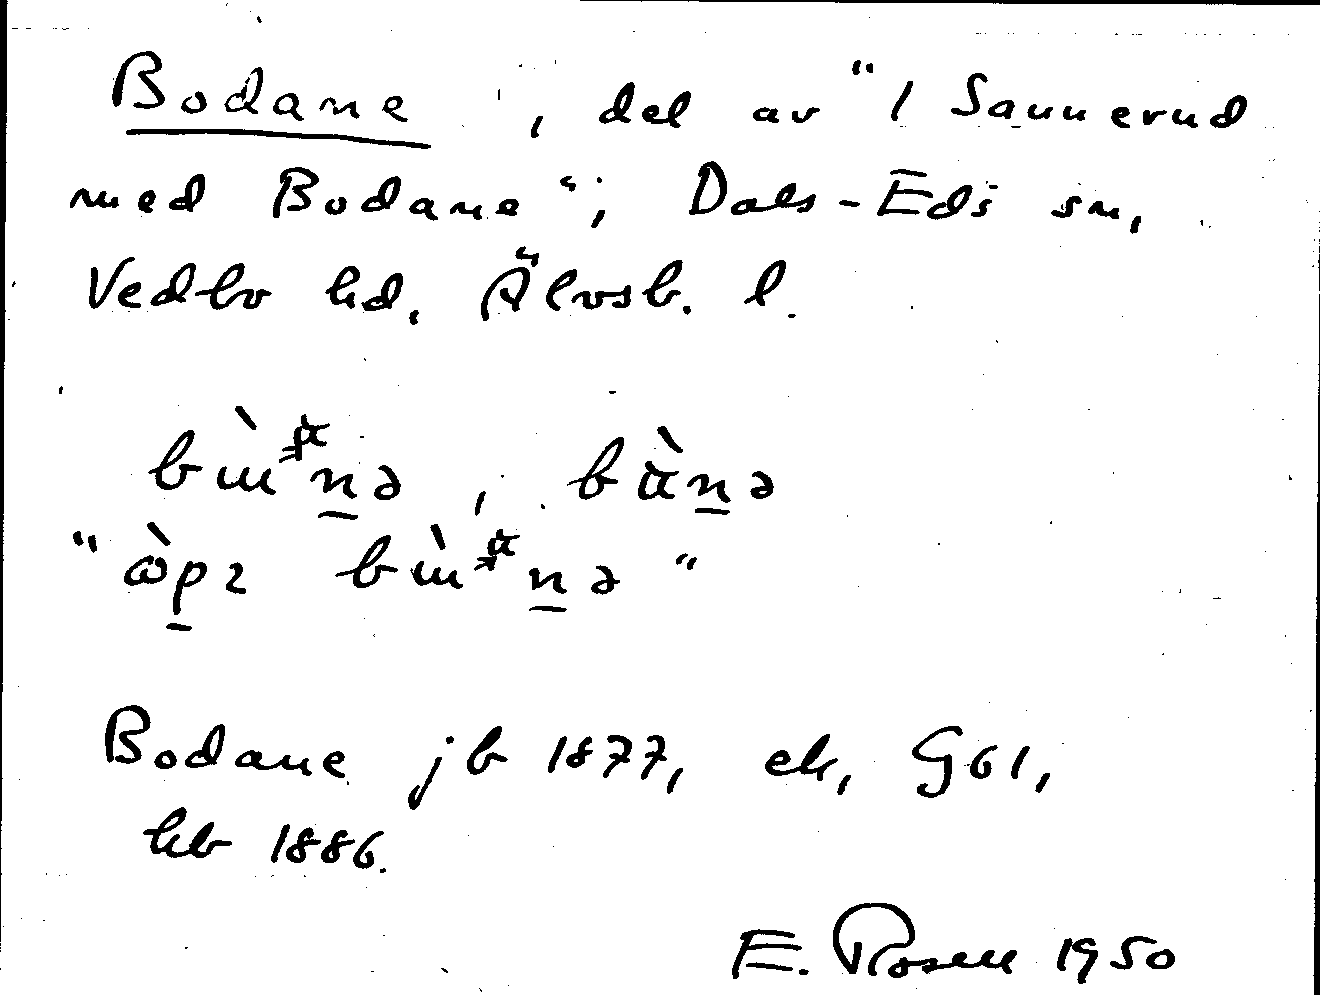 Bodane, del av "1 Sannerud
med Bodane"; Dals-Eds sn,
Vedbo hd, Älvsb. l.
bànə
Bodane jb 1877, ek, G61,
hb 1886.
E. Rosell 1950